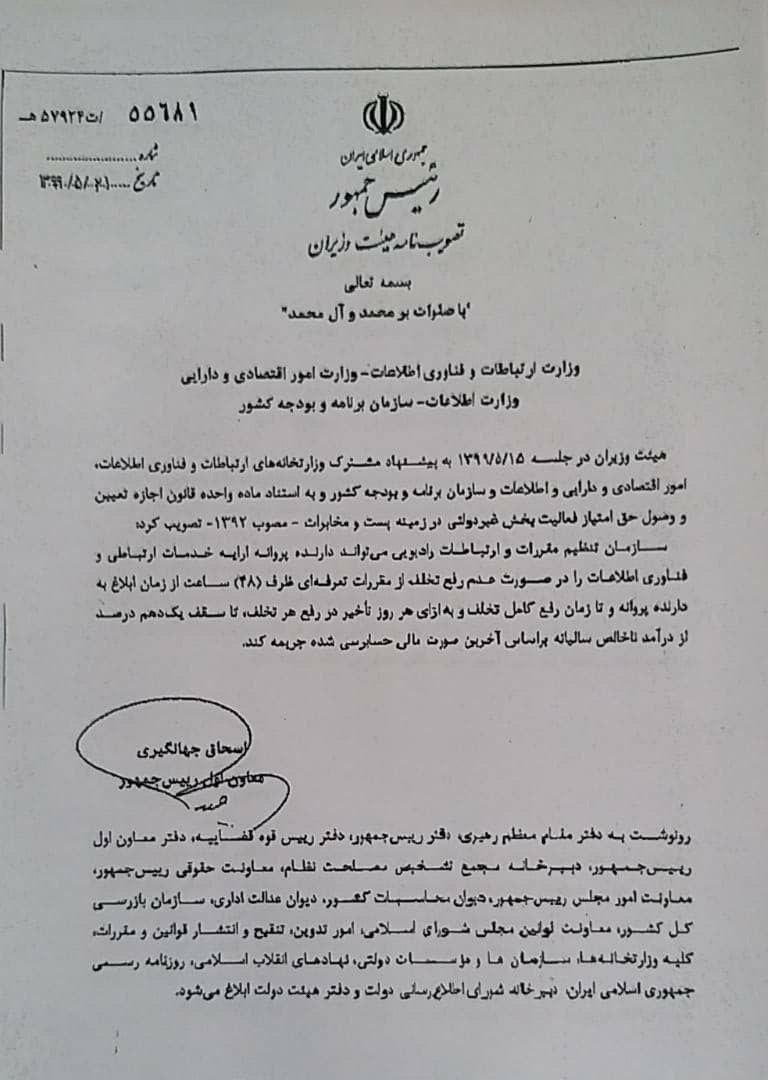 ۵۵۶۸۱ /ت۵۷۹۲۴هـ
شماره
تاریخ ۱۳۹۹/۵/۲۱
جمهوری اسلامی ایران
رئیس جمهور
تصویب نامه هیئت وزیران
بسمه تعالی
"با صلوات بر محمد و آل محمد"
وزارت ارتباطات و فناوری اطلاعات- وزارت امور اقتصادی و دارایی
وزارت اطلاعات- سازمان برنامه و بودجه کشور
هیئت وزیران در جلسه ۱۳۹۹/۵/۱۵ به پیشنهاد مشترک وزارتخانه‌های ارتباطات و فناوری اطلاعات،
امور اقتصادی و دارایی و اطلاعات و سازمان برنامه و بودجه کشور و به استناد ماده واحده قانون اجازه تعیین
و وصول حق امتیاز فعالیت بخش غیردولتی در زمینه پست و مخابرات - مصوب ۱۳۹۲- تصویب کرد:
سازمان تنظیم مقررات و ارتباطات رادیویی می‌تواند دارنده پروانه ارایه خدمات ارتباطی و
فناوری اطلاعات را در صورت عدم رفع تخلف از مقررات تعرفه‌ای ظرف (۴۸) ساعت از زمان ابلاغ به
دارنده پروانه و تا زمان رفع کامل تخلف و به‌ازای هر روز تأخیر در رفع هر تخلف، تا سقف یک‌دهم درصد
از درآمد ناخالص سالیانه براساس آخرین صورت مالی حسابرسی شده جریمه کند.
اسحاق جهانگیری
معاون اول رییس‌جمهور
رونوشت به دفتر مقام معظم رهبری، دفتر رییس‌جمهور، دفتر رییس قوه قضاییه، دفتر معاون اول
رییس‌جمهور، دبیرخانه مجمع تشخیص مصلحت نظام، معاونت حقوقی رییس‌جمهور،
معاونت امور مجلس رییس‌جمهور، دیوان محاسبات کشور، دیوان عدالت اداری، سازمان بازرسی
کل کشور، معاونت قوانین مجلس شورای اسلامی، امور تدوین، تنقیح و انتشار قوانین و مقررات،
کلیه وزارتخانه‌ها، سازمان ها و مؤسسات دولتی، نهادهای انقلاب اسلامی، روزنامه رسمی
جمهوری اسلامی ایران، دبیرخانه شورای اطلاع‌رسانی دولت و دفتر هیئت دولت ابلاغ می‌شود.